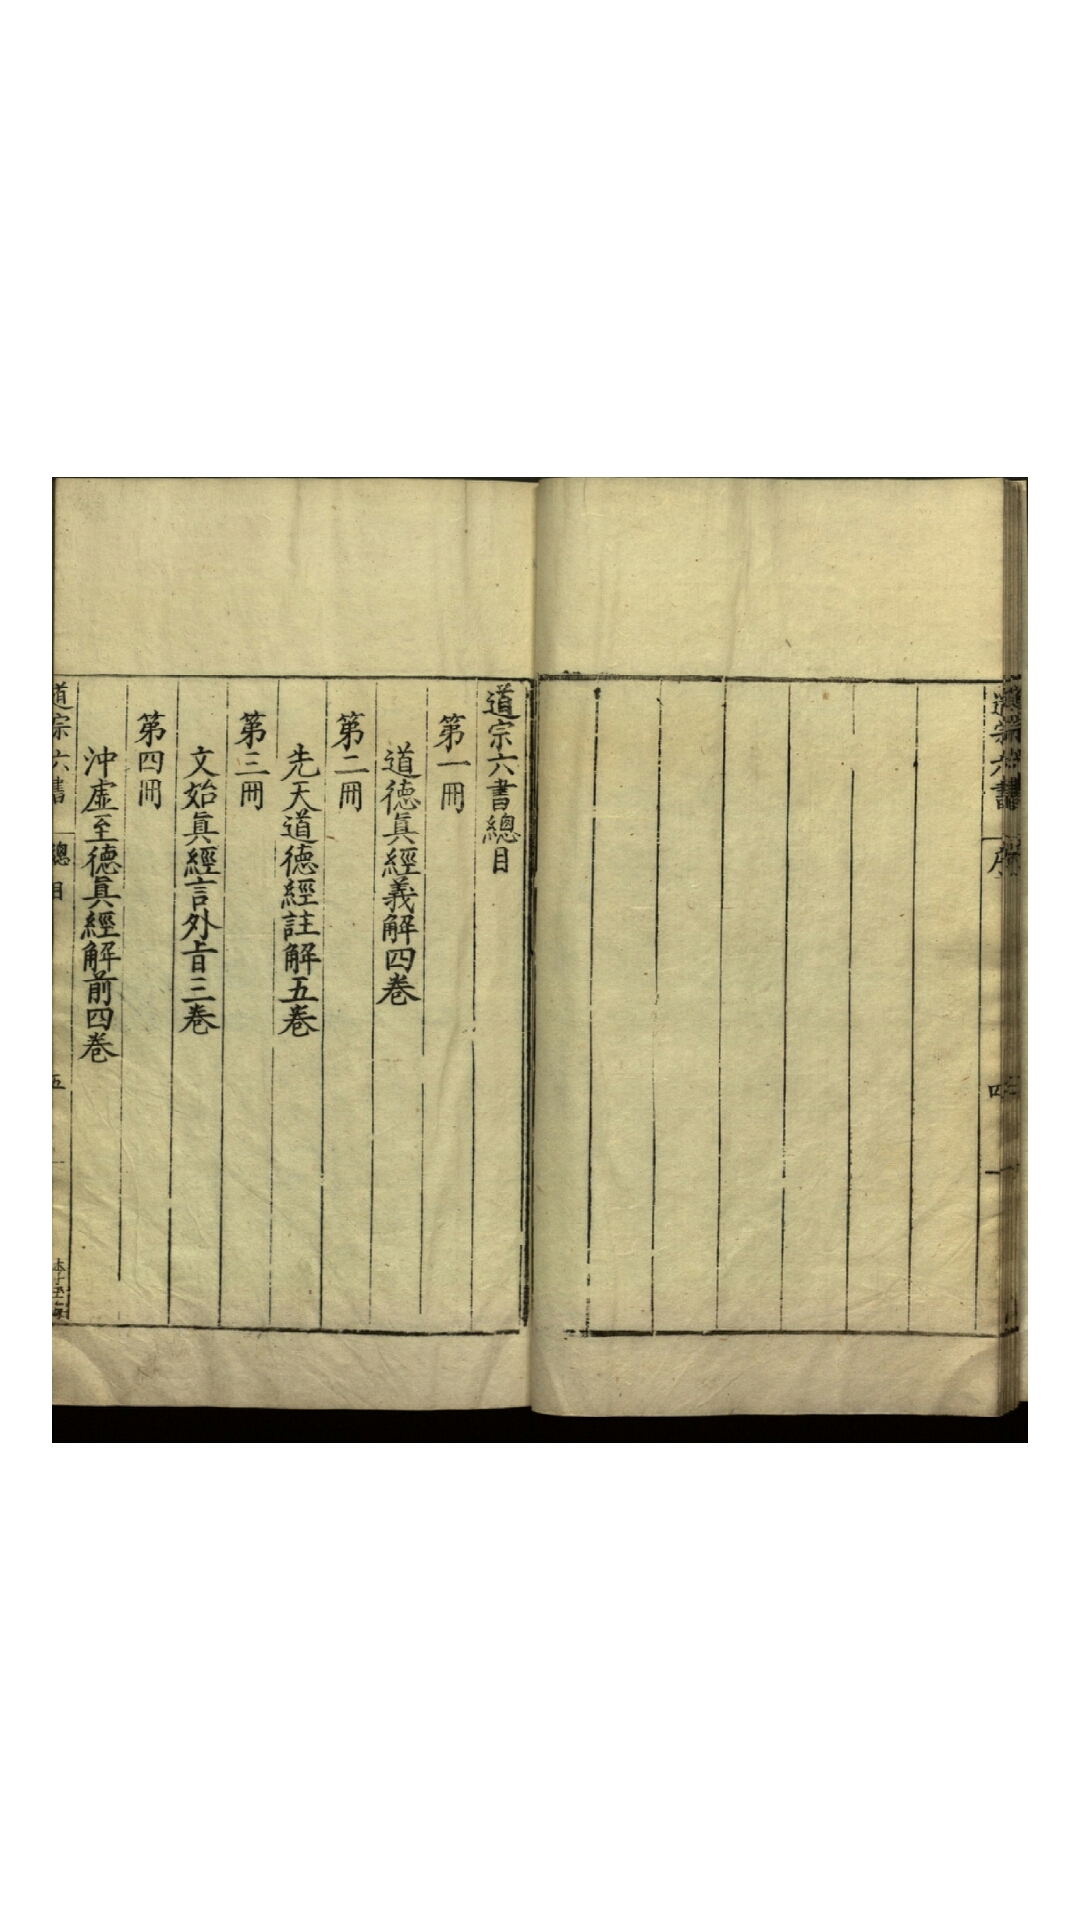 道宗六書
序
四
道宗六書總目
第一冊
道德眞經義解四卷
第二冊
先天道德經註解五卷
第三冊
文始眞經言外旨三卷
第四冊
沖虛至德眞經解前四卷
道宗六書
總目
五